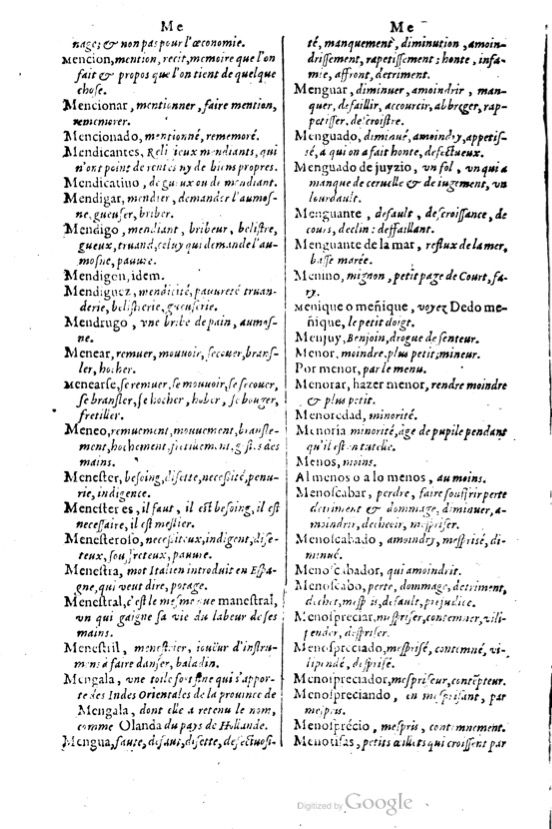 Me
nage; & non pas pour l'œconomie.
Mencion, mention, recit, memoire que l'on
fait & propos que l'on tient de quelque
chose.
Mencionar, mentionner, faire mention,
rememorer.
Mencionado, mentionné, rememoré.
Mendicantes, Religieux mendiants, qui
n'ont point de rentes ny de biens propres.
Mendicatiuo, de gueux ou de mendiant.
Mendigar, mendier, demander l'aumos-
ne, gueuser, briber.
Mendigo, mendiant, bribeur, belistre,
gueux, truand, celuy qui demande l'au-
mosne, pauure.
Mendigon, idem.
Mendiguez, mendicité, pauureté truan-
derie, belistrerie, gueuserie.
Mendrugo, vne bribe de pain, aumos-
ne.
Menear, remuer, mouuoir, secouer, brans-
ler, hocher.
Menearse, se remuer, se mouuoir, se secouer,
se bransler, se hocher, hober, se bouger,
fretiller.
Meneo, remuement, mouuement, bransle-
ment, hochement, fretillement, gestes des
mains.
Menester, besoing, disette, necessité, penu-
rie, indigence.
Menester es, il faut, il est besoing, il est
necessaire, il est mestier.
Menesteroso, necessiteux, indigent, dise-
teux, souffreteux, pauure.
Menestra, mot Italien introduit en Espa-
gne, qui veut dire, potage.
Menestral, c'est le mesme que manestral,
vn qui gaigne sa vie du labeur de ses
mains.
Menestril, menestrier, ioüeur d'instru-
mens à faire danser, baladin.
Mengala, vne toile fort fine qui s'appor-
te des Indes Orientales de la prouince de
Mengala, dont elle a retenu le nom,
comme Olanda du pays de Hollande.
Mengua, faute, defaut, disette, defectuosi-
Me
té, manquement, diminution, amoin-
drissement, rapetissement: honte, infa-
mie, affront, detriment.
Menguar, diminuer, amoindrir, man-
quer, defaillir, accourcir, abbreger, rap-
petisser, decroistre.
Menguado, diminué, amoindry, appetis-
sé, a qui on a fait honte, defectueux.
Menguado de juyzio, vn fol, vn qui a
manque de ceruelle & de iugement, vn
lourdault.
Menguante, default, decroissance, de
cours, declin: deffaillant.
Menguante de la mar, reflux de la mer,
basse marée.
Menino, mignon, petit page de Court, fa-
ry.
Menique o meñique, voyez Dedo me-
ñique, le petit doigt.
Menjuy, Benjoin, drogue de senteur.
Menor, moindre, plus petit, mineur.
Por menor, par le menu.
Menorar, hazer menor, rendre moindre
& plus petit.
Menoredad, minorité.
Menoria minorité, âge de pupile pendant
qu'il est en tutelle.
Menos, moins.
Al menos o a lo menos, au moins.
Menoscabar, perdre, faire souffrir perte
detriment & dommage, diminuer, a-
moindrir, decheoir, mespriser.
Menoscabado, amoindry, mesprisé, di-
minué.
Menoscabador, qui amoindrit.
Menoscabo, perte, dommage, detriment,
dechet, mespris, default, prejudice.
Menospreciar, mespriser, contemner, vili-
pender, despriser.
Menospreciado, mesprisé, contemné, vi-
lipendé, desprisé.
Menospreciador, mespriseur, contempteur.
Menospreciando, en mesprisant, par
mespris.
Menosprécio, mespris, contemnement.
Menotisas, petits œillets qui croissent par
Digitized by Google